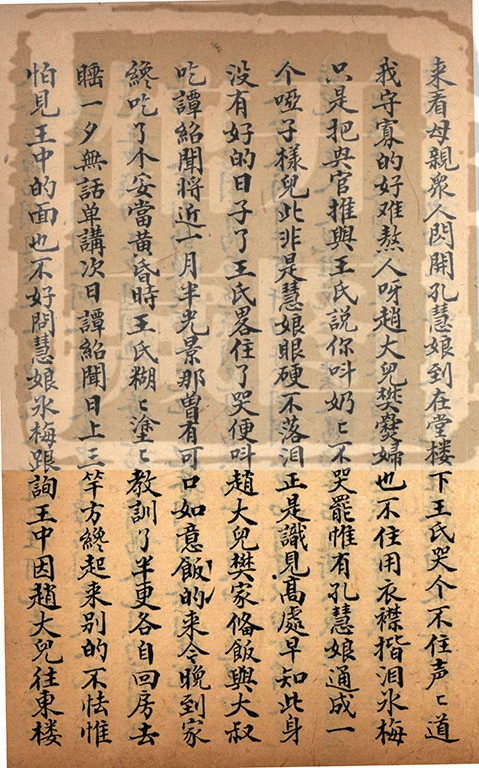 来看母親衆人閃開孔慧娘到在堂楼下王氏哭个不住声〻道
我守寡的好难熬人呀趙大兒樊爨婦也不住用衣襟揩泪氷梅
只是把興官推與王氏說你呌奶〻不哭罷惟有孔慧娘通成一
个啞子樣兒此非是慧娘眼硬不落泪正是識見高處早知此身
没有好的日子了王氏畧住了哭便呌趙大兒樊家俻飯與大叔
吃譚紹聞將近一月半光景那曽有可口如意飯的来今晚到家
纔吃了个妥當黄昏時王氏糊〻塗〻教訓了半更各自回房去
睡一夕無話单講次日譚紹聞日上三竿方纔起来别的不怯惟
怕見王中的面也不好問慧娘氷梅跟詢王中因趙大兒往東楼